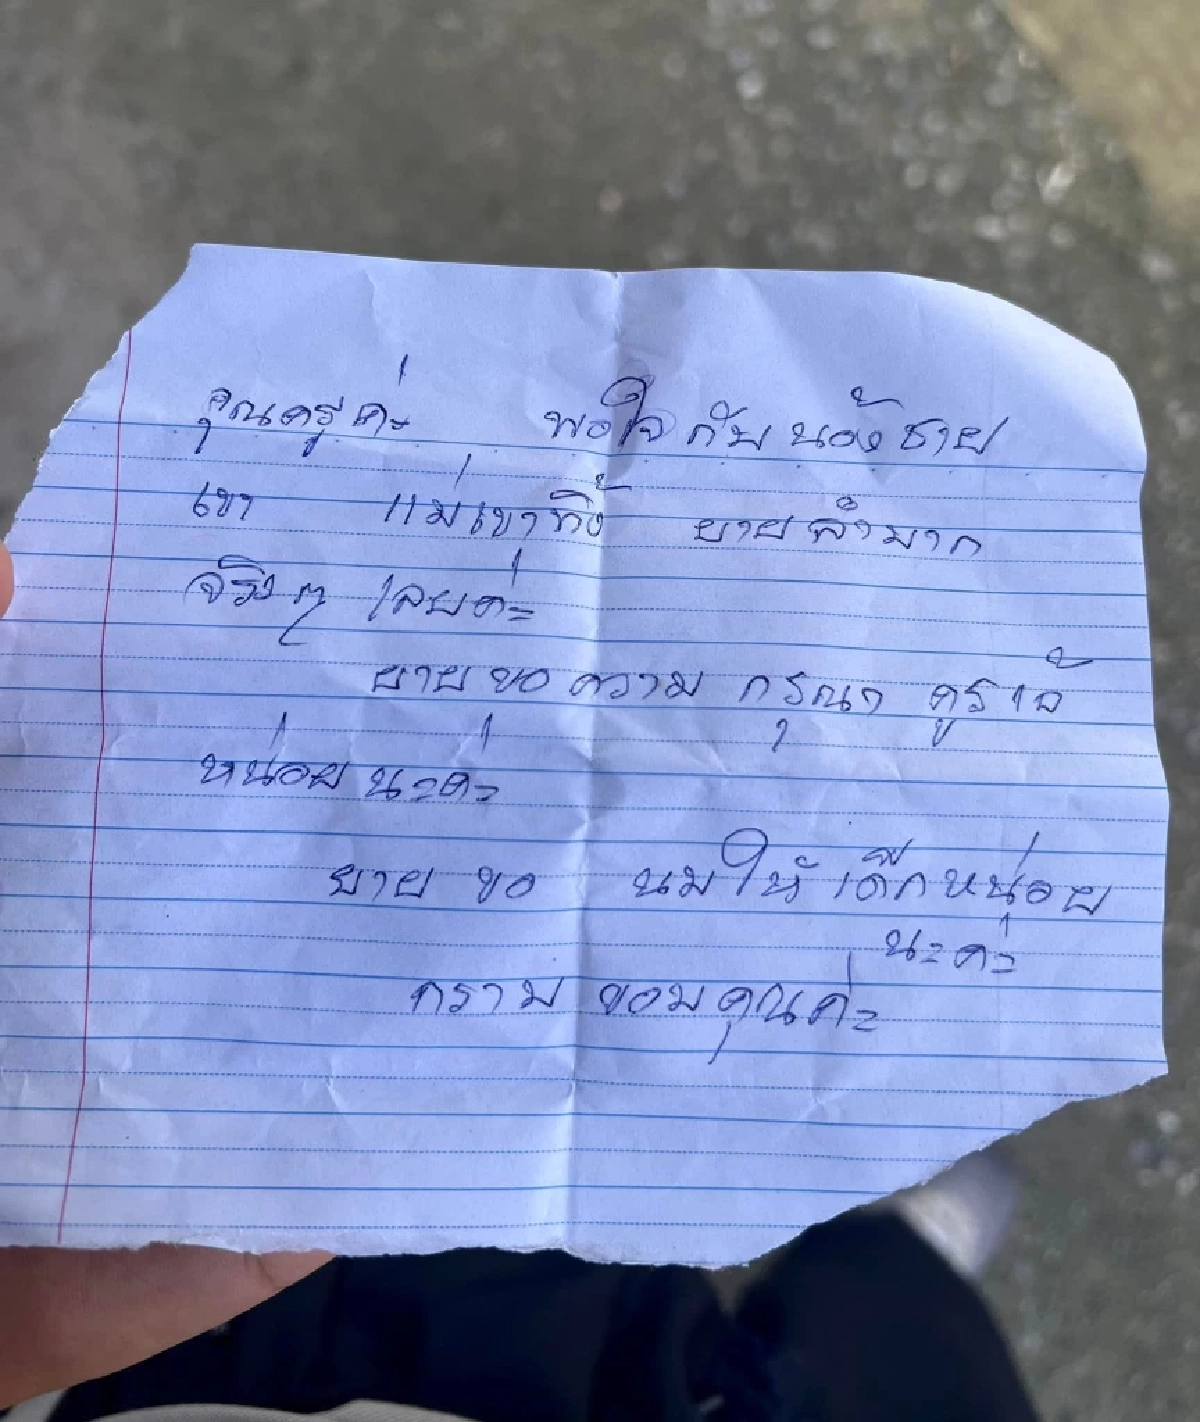 คุณครูค่ะ พอใจกับน้องชาย
เขา แม่เขาทิ้ง ยายลำบาก
จริงๆ เลยค่ะ
ยายขอความ กรุณา ครูเจ้
หน่อยนะค่ะ
ยาย ขอ นมให้เด็กหน่อย
นะค่ะ
กราบ ขอบคุณค่ะ